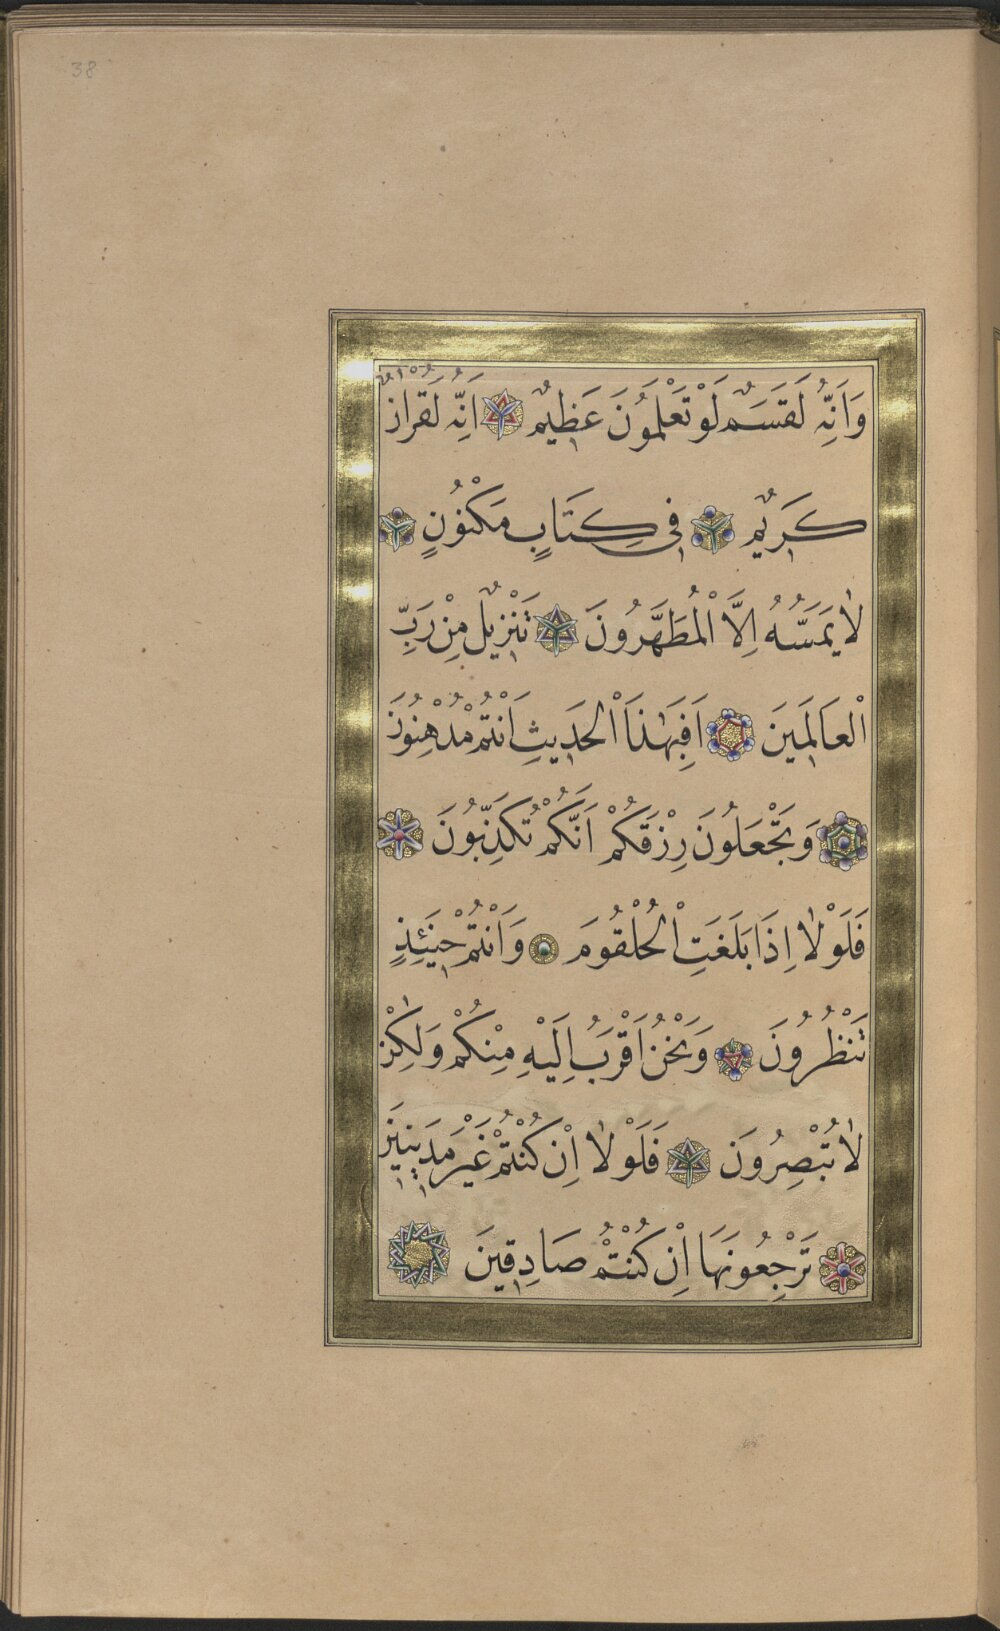 38
وَاَنِّهُ لَقَسَمٌ لَوْ تَعْلَمُونَ عَظِيمٌ اَنِّهُ لَقُرْاٰنٌ
كَرِيمٌ فِى كِتَابٍ مَكْنُونٍ
لَا يَمَسُّهُ اِلَّا الْمُطَهَّرُونَ تَنْزِيلٌ مِنْ رَبِّ
الْعَالَمِينَ اَفَبِهٰذَا الْحَدِيثِ اَنْتُمْ مُدْهِنُونَ
وَتَجْعَلُونَ رِزْقَكُمْ اَنَّكُمْ تُكَذِّبُونَ
فَلَوْلَا اِذَا بَلَغَتِ الْحُلْقُومَ وَاَنْتُمْ حِينَئِذٍ
تَنْظُرُونَ وَنَحْنُ اَقْرَبُ اِلَيْهِ مِنْكُمْ وَلٰكِنْ
لَا تُبْصِرُونَ فَلَوْلَا اِنْ كُنْتُمْ غَيْرَ مَدِينِينَ
تَرْجِعُونَهَا اِنْ كُنْتُمْ صَادِقِينَ